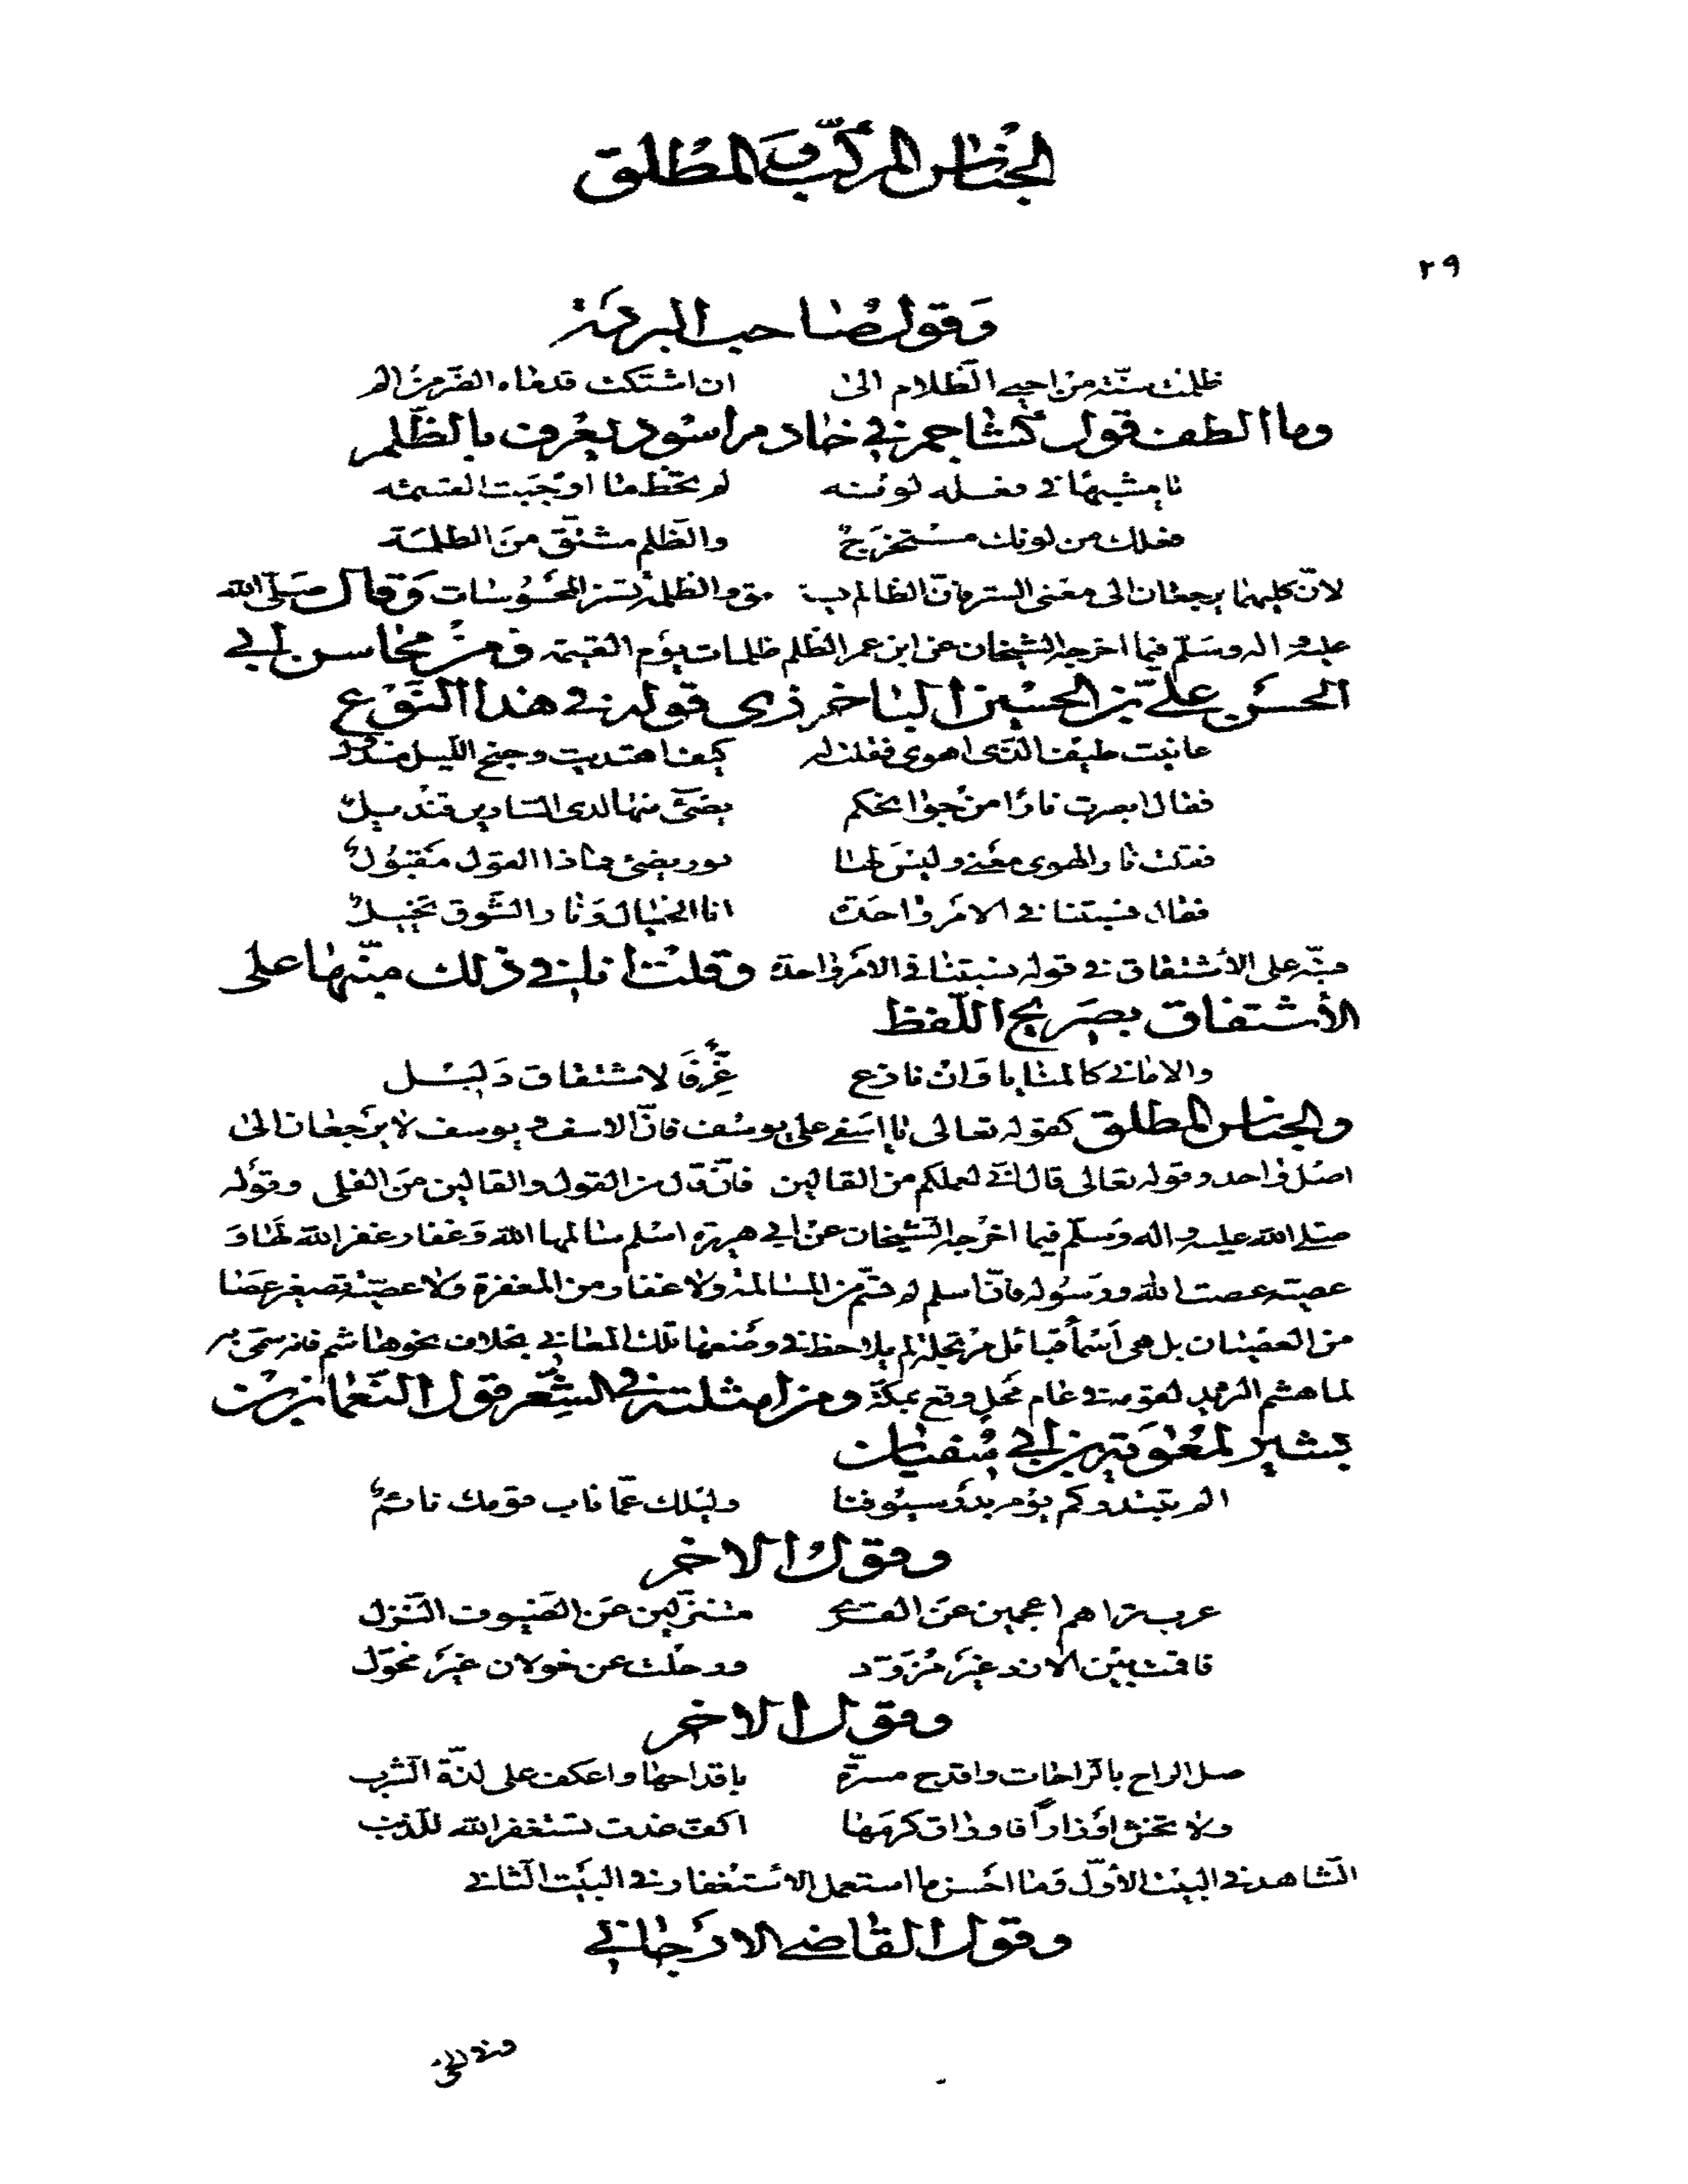 الجناس المركّب والمطلق
٢٩
وقول صاحب البردة
ظلمت سنّة من احيى الظّلام الى ان اشتكت قدماه الضّرّ من الم
وما الطف قول كشاجم في خادم اسود يعرف بالظّلم
يا مشبهًا في فعله لونه لم تخط ما اوجبت القسمه
فعلك من لونك مستخرج والظّلم مشتقّ من الظلمة
لانّ كليهما يرجعان الى معنى الستر فانّ الظالم يستر الحق والظلمة تستر المحسوسات وقال صلّى الله
عليه واله وسلّم فيما اخرجه الشيخان عن ابن عمر الظّلم ظلمات يوم القيمة ومن محاسن ابي
الحسن عليّ بن الحسين الباخرزي قوله في هذا النّوع
عاتبت طيف الّذى اهوى فقلت له كيف اهتديت وجنح اللّيل مسدول
فقال ابصرت نارًا من جوانحكم يضئ منها لدى السّارين قنديل
فقلت نار الهوى معنى وليس لها نور يضئ فماذا القول مقبول
فقال نسبتنا في الامر واحدة انا الخيال ونار الشّوق تخييل
منبّه على الأشتقاق في قوله نسبتنا في الامر واحدة وقلت انا في ذلك منبّهًا على
الأشتقاق بصريح اللّفظ
والامانى كالمنايا وان نازع غرّفًا لاشتقاق دليل
والجناس المطلق كقوله تعالى يا اسفى على يوسف فانّ الاسف ويوسف لا يرجعان الى
اصل واحد وقوله تعالى قال انّى لعملكم من القالين فانّ قال من القول والقالين من القلى وقوله
صلى الله عليه واله وسلّم فيما اخرجه الشّيخان عن ابي هريرة اسلم سالمها الله وغفار غفر الله لها و
عصيّة عصت الله ورسوله فانّ اسلم لم يشتقّ من المسالمة ولا غفار من المغفرة ولا عصيّة تصغير عصا
من العصيان بل هى أسمأ قبائل مرتجلة لم يلاحظ في وضعها تلك المعانى بخلاف نحو هاشم فانه سمّى به
لما هشم الثريد لقومه في عام محل وقع بمكّة ومن امثلته في الشّعر قول النّعمان بن
بشير لمعوية بن ابي سفيان
الم تبتدركم يوم بدر سيوفنا وليلك عمّا ناب قومك نائم
وقول الاخر
عرب تراهم اعجمين عن القرى متنزّلين عن الضّيوف النّزل
فاقمت بين الازد غير مزوّد ورحلت عن خولان غير مخوّل
وقول الاخر
صل الراح بالرّاحات واقدح مسرّة باقداحها واعكف على لذّة الشّرب
ولا تخش اوزارًا فاوراق كرمها اكفّ غدت تستغفر الله للذّنب
الشّاهد في البيت الأوّل وما احسن ما استعمل الاستغفار في البيت الثّانى
وقول القاضى الارّجانى